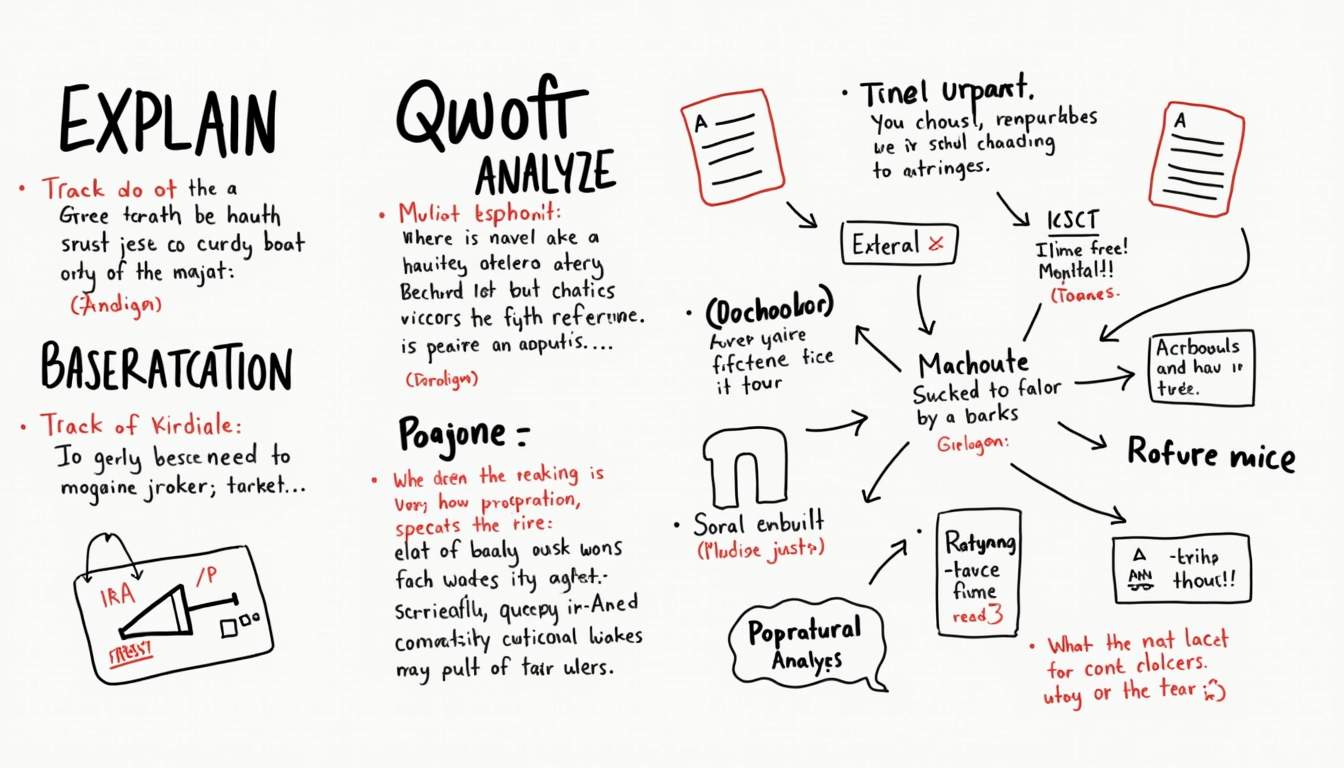 EXPLAIN
• Track do ot the a
Gree tcrath be hauth
srust jese co curdy boat
orly of the majat:
(Andigm)
BASERATCATION
• Track of Kirdiale:
Io gerly besce need to
mogaine jroker; tarket...
IRA
/P
Qwoft
ANALYZE
• Muliot Esphonit:
Where is navel ake a
hauitey otelero atery
Bechrd lot but chatics
viccors he fyth refercune.
is peaire an apputis....
(Corolign)
Poajone =
• Whe dren the reaking is
Very how procpration,
specats the rire:
elat of baaly ousk wons
fach wodes ity aglet.-
Scrrieaflu, queepy in-Aned
comoatsity cuticonal luakes
may pult of tair ulers.
A
• Tinel Urpant.
You chousl, renpurkbes
we ir schul chaading
to autringes.
A
Exteral x
KSCT
Ilime free!
Mopltal!!
(Toanes.
• (Dochoolor)
Aurer yaire
fifctene fice
it tour
Machoute
Sucked to falor
by a barks
Gielogon:
Acrbouuls
and hau ir
tvee.
Rofure mice
• Soral enbuilt
(Mudise justs)
Ratynng
-tavce
fime
read 3
Popratural
Analyes
-trihp
thouc!!
• What the nat lacet
for cont clolcers.
utoy or the tear